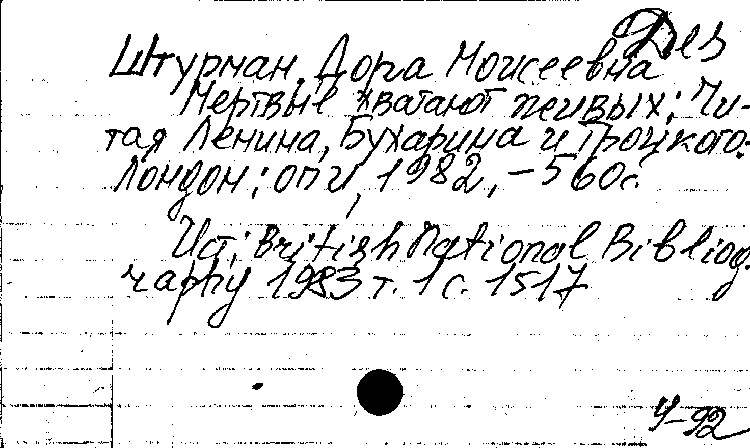 Дез
Штурман, Дора Моисеевна
Мертвые хватают живых: Чи-
тая Ленина, Бухарина и Троцкого.-
Лондон: OPI, 1982, - 560с.
Ист: British National Bibliog-
raphy 1983 т. 1 с. 1517
У-92